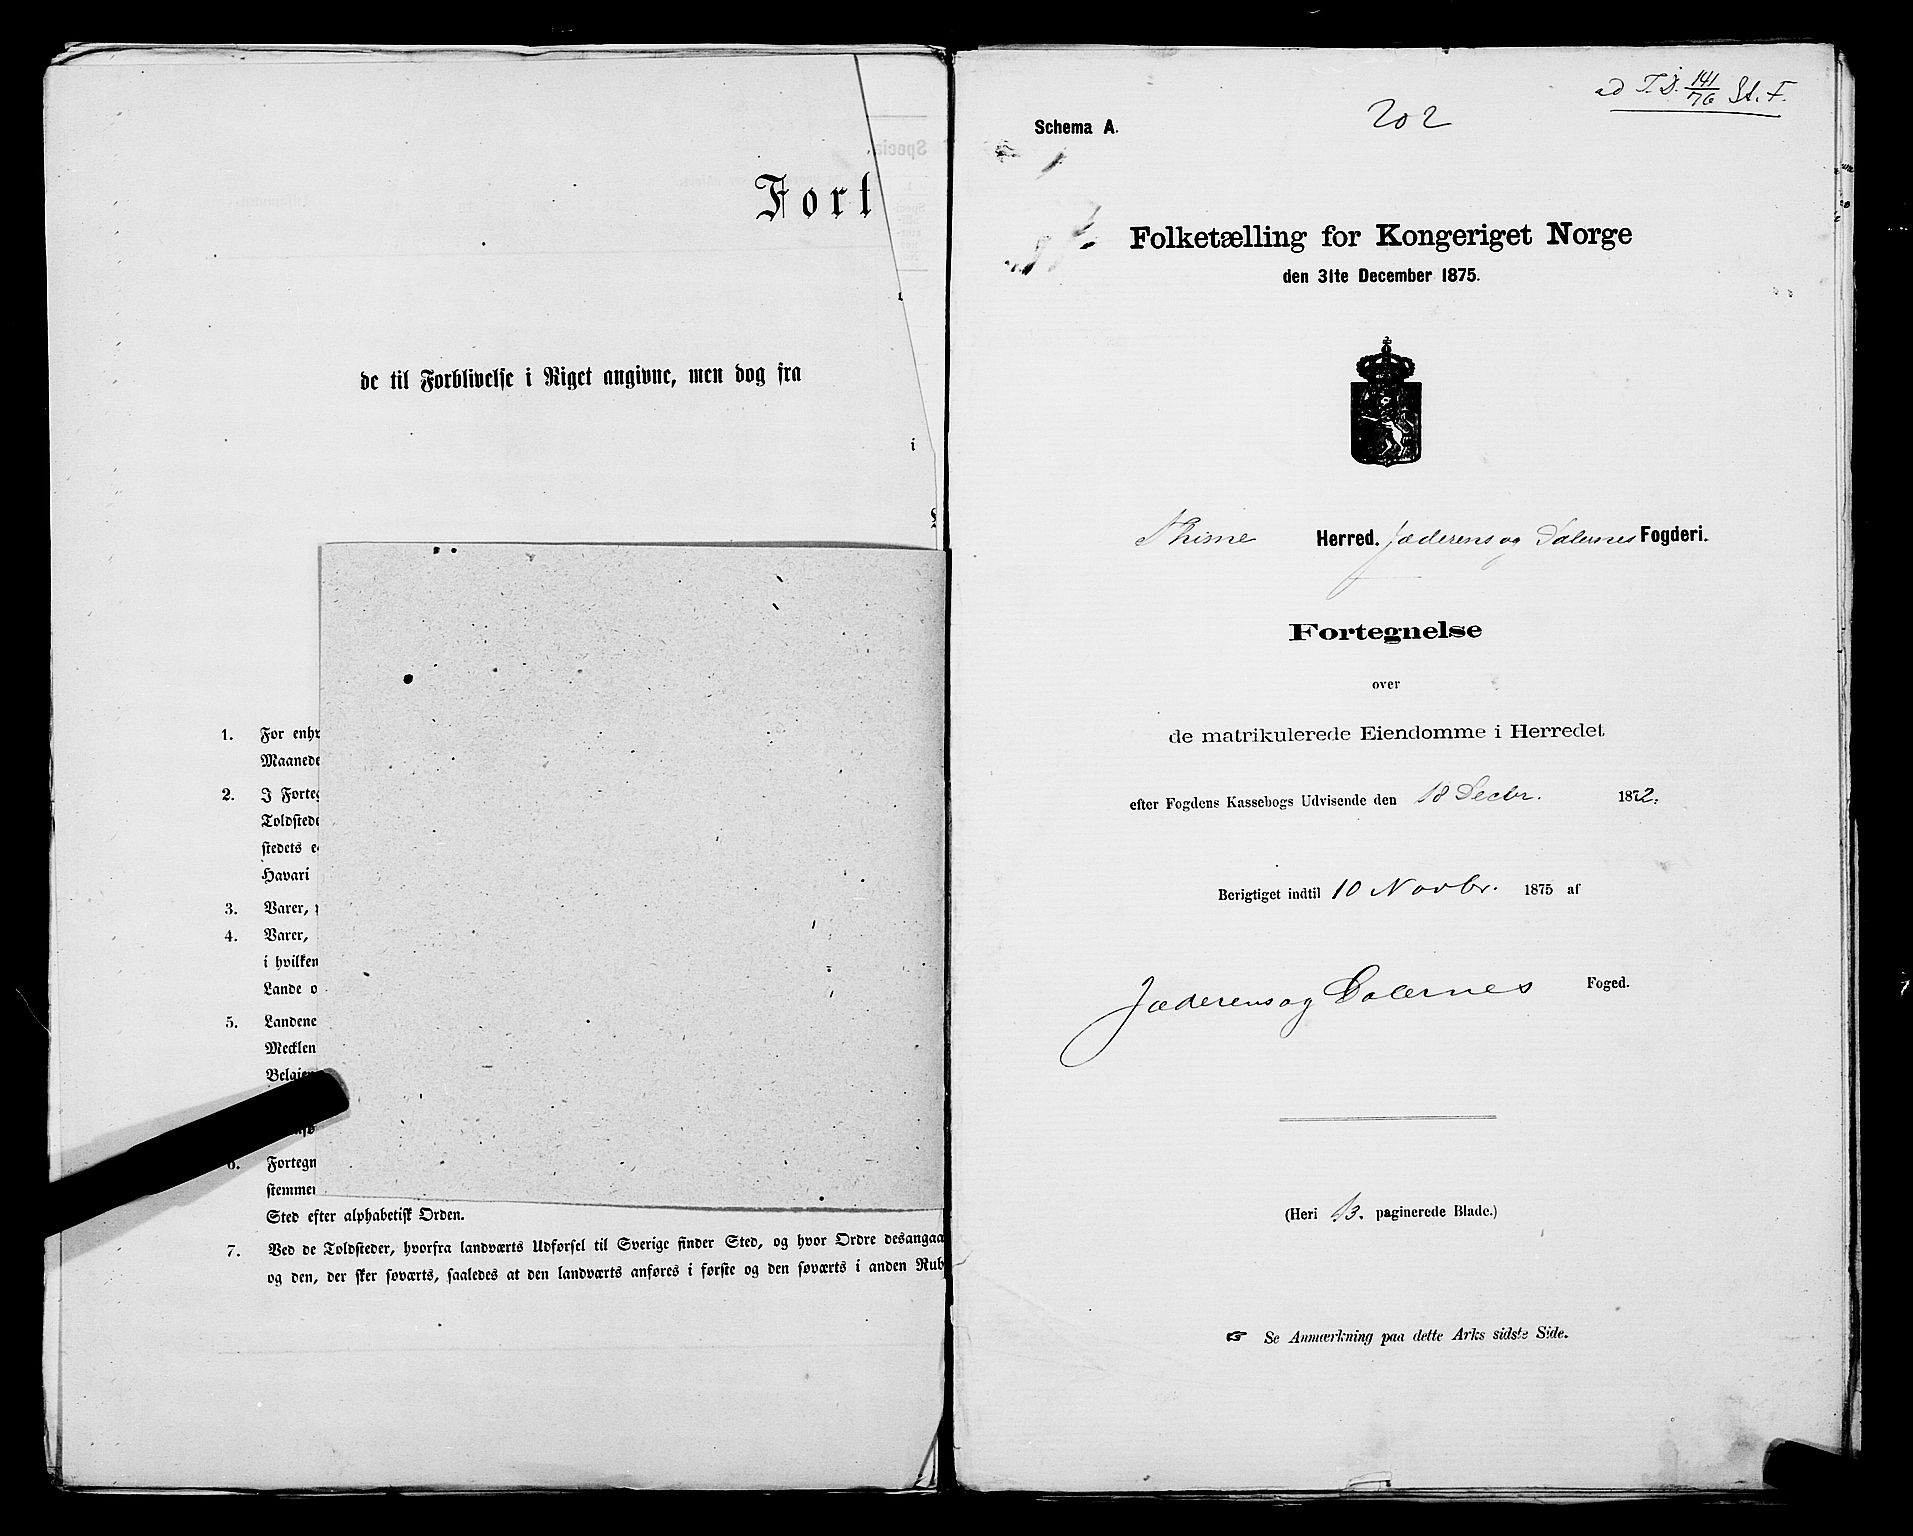 Fort
de til Forblivelse i Riget angivne, men dog fra
i
1. For enhv
Maanede
2. I Forteg
Toldstede
stedets e
Havari
3. Varer,
4. Varer,
i hvilken
Lande o
5. Landene
Mecklen
Belgien
6. Fortegn
stemmer
Sted efter alphabetisk Orden.
7. Ved de Toldsteder, hvorfra landværts Udførsel til Sverige finder Sted, og hvor Ordre desangaa
og den, der sker søværts, saaledes at den landværts anføres i første og den søværts i anden Rub
ad T.D. 141/76 St. F.
202
Schema A.
Folketælling for Kongeriget Norge
den 31te December 1875.
Thime Herred. Jæderens og Dalernes Fogderi.
Fortegnelse
over
de matrikulerede Eiendomme i Herredet
efter Fogdens Kassebogs Udvisende den 18 Decbr. 1872.
Berigtiget indtil 10 Novbr. 1875 af
Jæderens og Dalernes Foged.
(Heri 13. paginerede Blade.)
☞ Se Anmærkning paa dette Arks sidste Side.